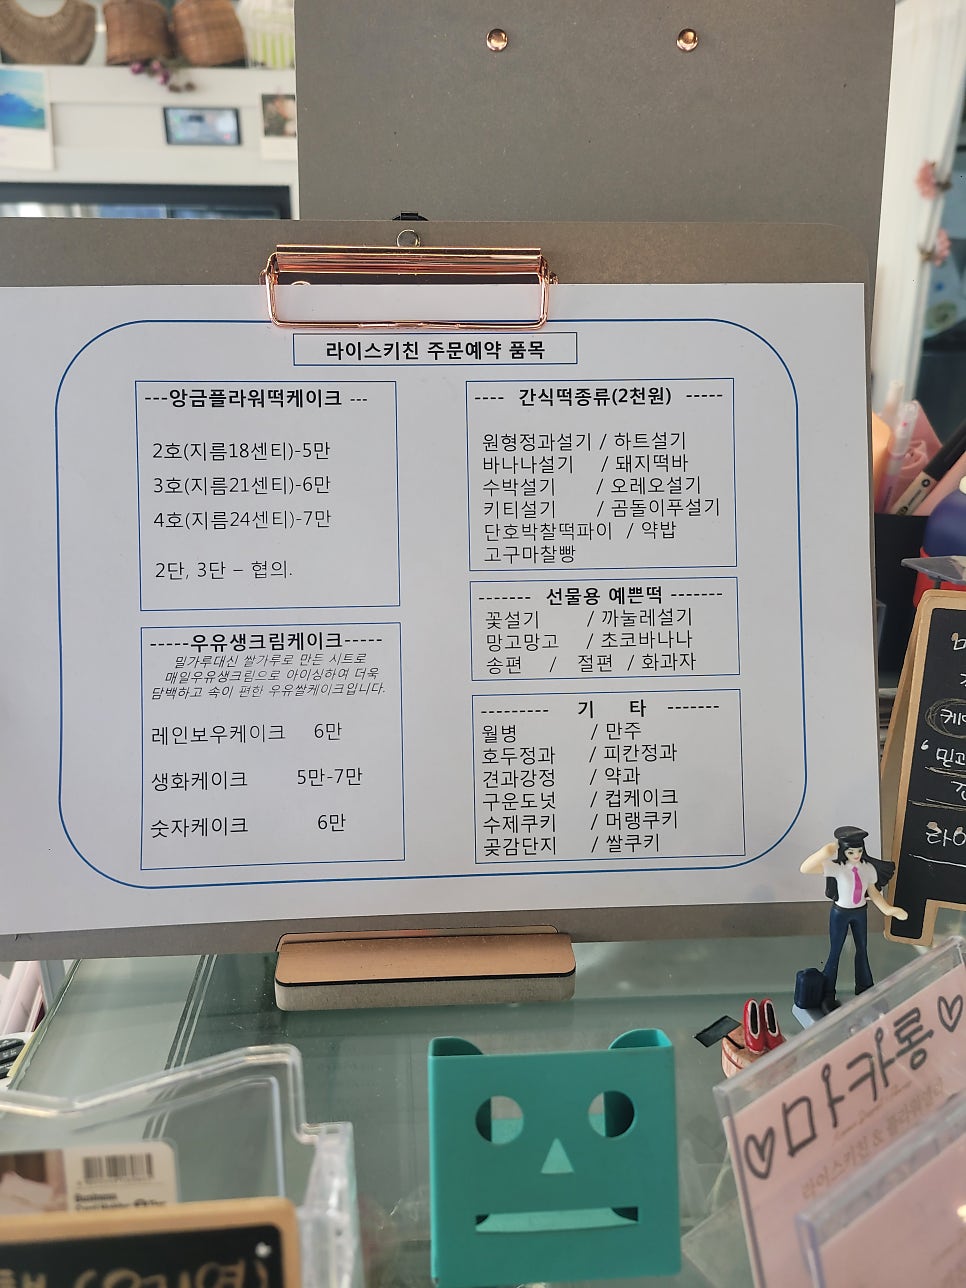 라이스키친 주문예약 품목
---앙금플라워떡케이크 ---
2호(지름18센티)-5만
3호(지름21센티)-6만
4호(지름24센티)-7만
2단, 3단 – 협의.
-----우유생크림케이크-----
밀가루대신 쌀가루로 만든 시트로
매일우유생크림으로 아이싱하여 더욱
담백하고 속이 편한 우유쌀케이크입니다.
레인보우케이크 6만
생화케이크 5만-7만
숫자케이크 6만
---- 간식떡종류(2천원) -----
원형정과설기 / 하트설기
바나나설기 / 돼지떡바
수박설기 / 오레오설기
키티설기 / 곰돌이푸설기
단호박찰떡파이 / 약밥
고구마찰빵
------- 선물용 예쁜떡 --------
꽃설기 / 까눌레설기
망고망고 / 초코바나나
송편 / 절편 / 화과자
--------- 기 타 -------
월병 / 만주
호두정과 / 피칸정과
견과강정 / 약과
구운도넛 / 컵케이크
수제쿠키 / 머랭쿠키
곶감단지 / 쌀쿠키
마카롱
라이스키친 & 플라워
Business